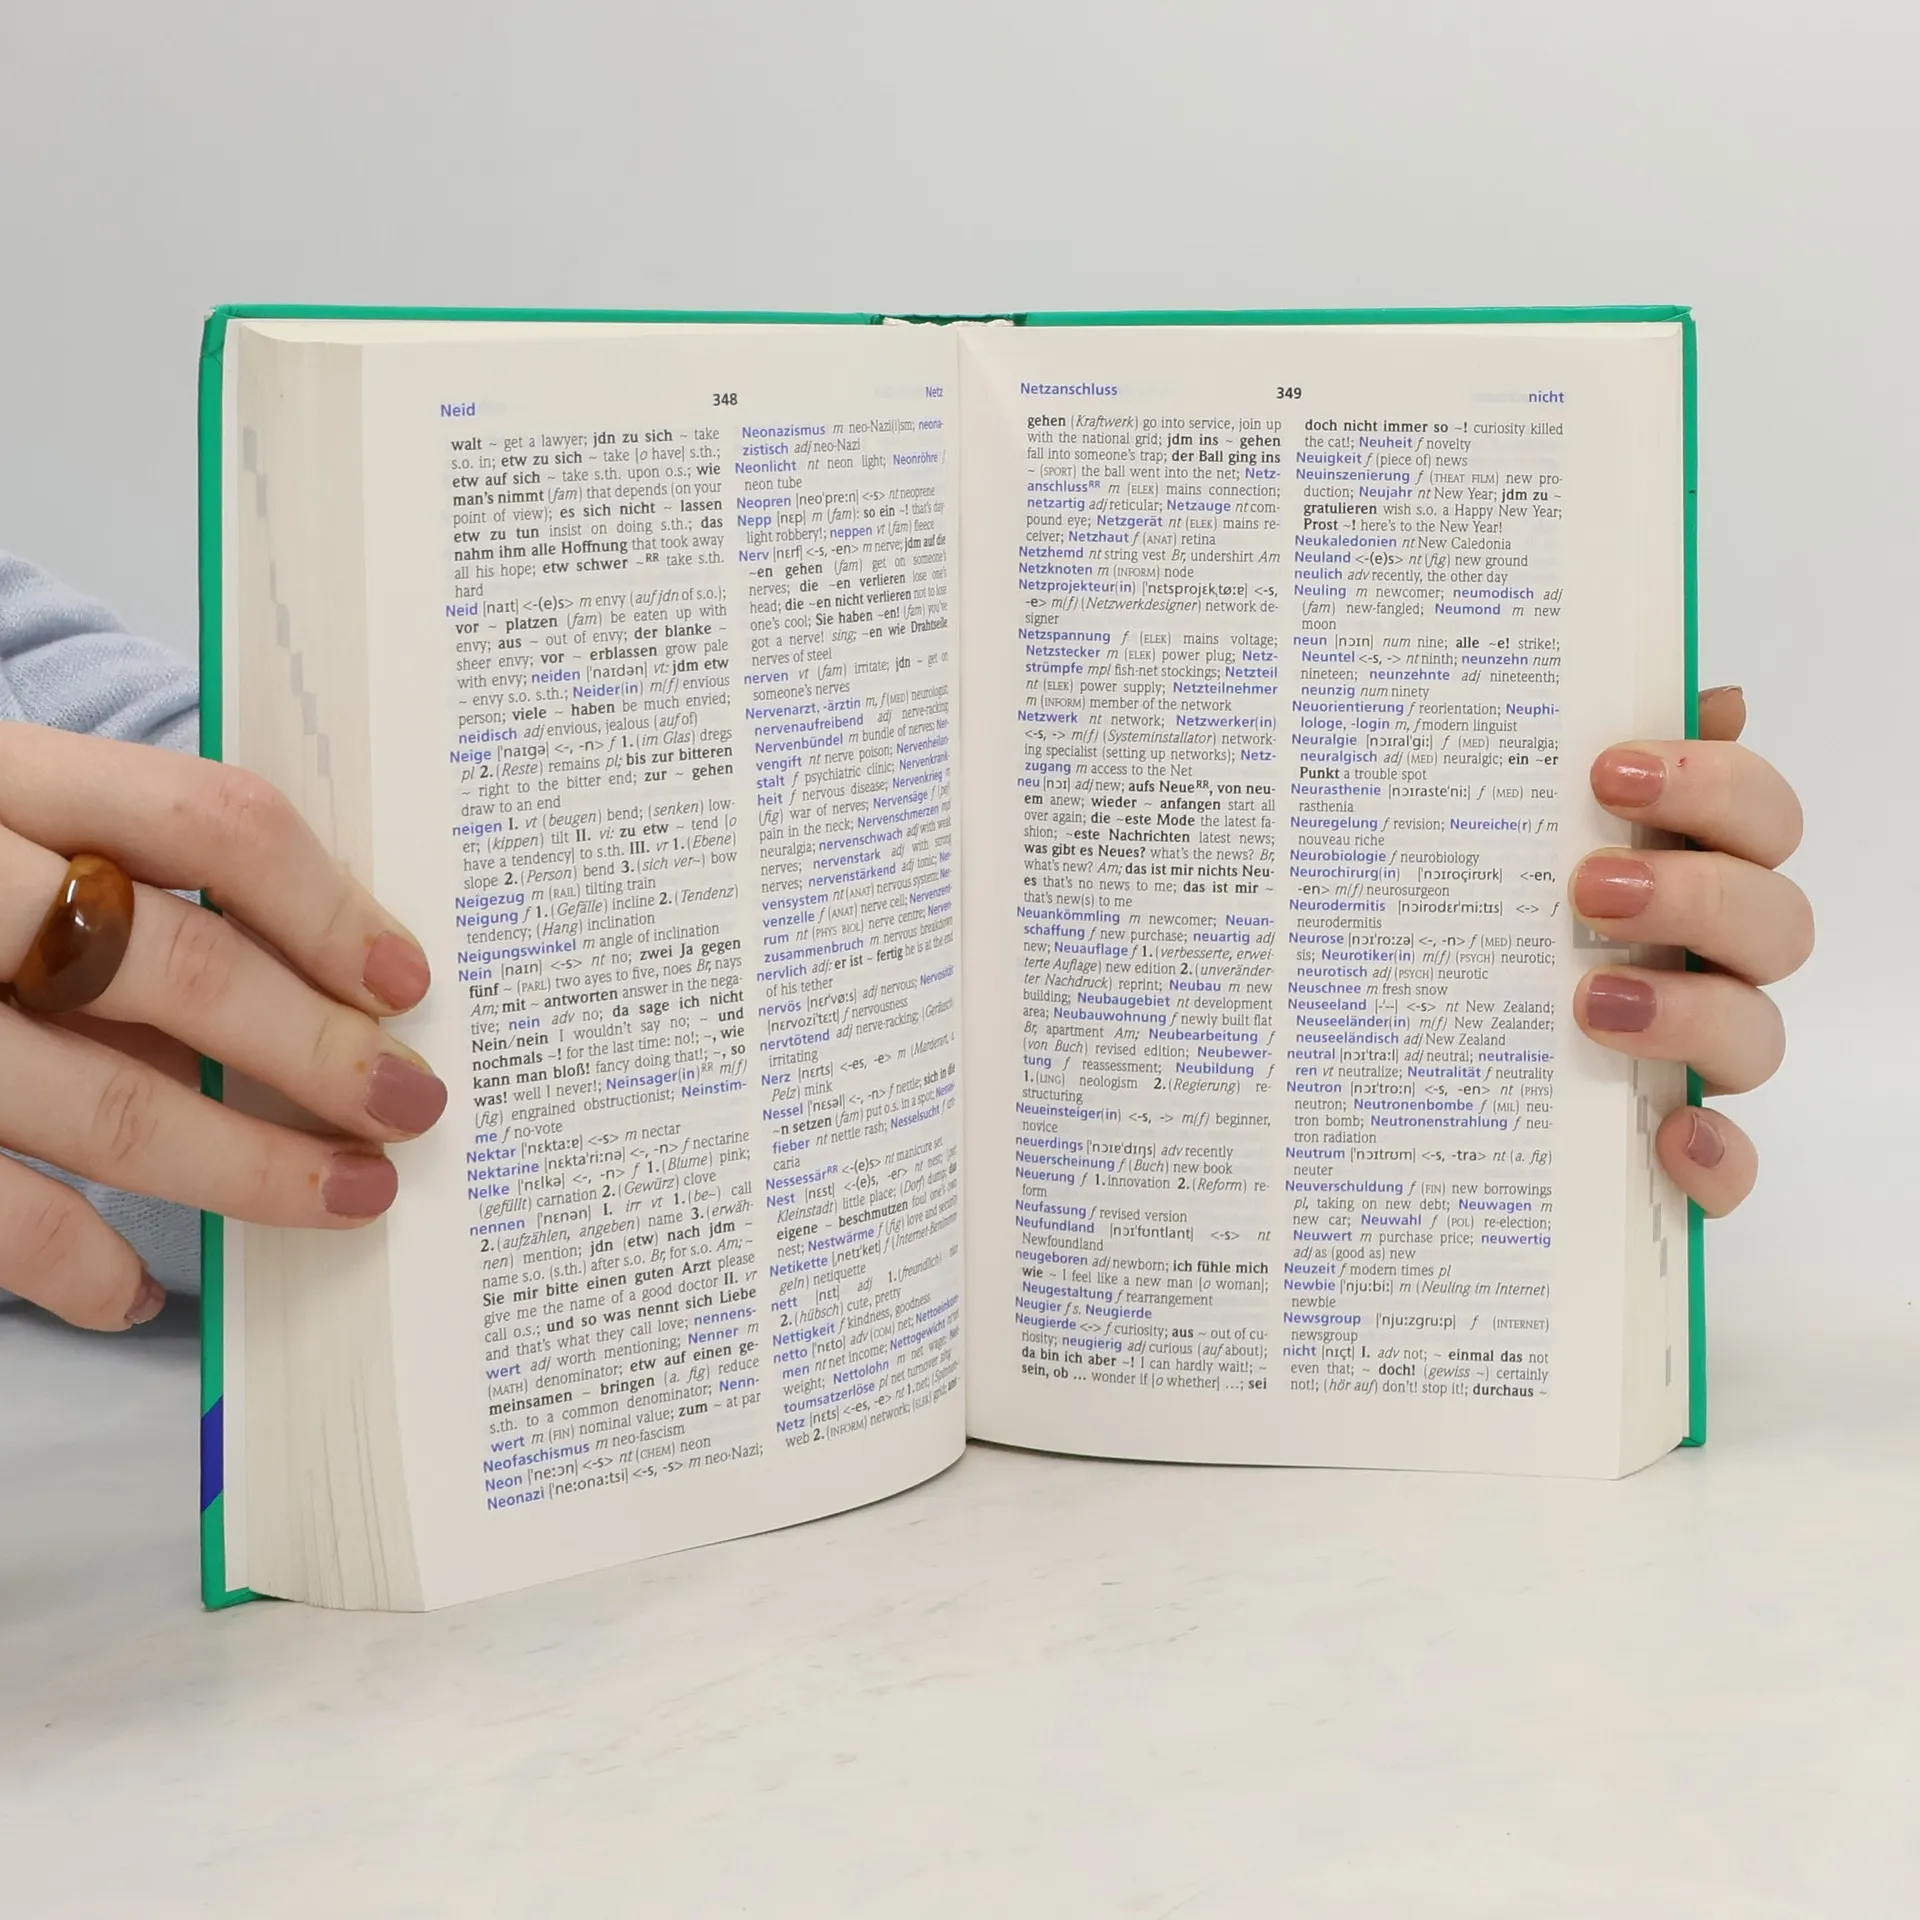 Neid
348
Netz
walt ~ get a lawyer; jdn zu sich ~ take
s.o. in; etw zu sich ~ take [o have] s.th.;
etw auf sich ~ take s.th. upon o.s.; wie
man's nimmt (fam) that depends (on your
point of view); es sich nicht ~ lassen
etw zu tun insist on doing s.th.; das
nahm ihm alle Hoffnung that took away
all his hope; etw schwer ~RR take s.th.
hard
Neid [naɪt] <-(e)s> m envy (auf jdn of s.o.);
vor ~ platzen (fam) be eaten up with
envy; aus ~ out of envy; der blanke ~
sheer envy; vor ~ erblassen grow pale
with envy; neiden ['naɪdən] vt: jdm etw
~ envy s.o. s.th.; Neider(in) m(f) envious
person; viele ~ haben be much envied;
neidisch adj envious, jealous (auf of)
Neige ['naɪgə] <-, -n> f 1. (im Glas) dregs
pl 2. (Reste) remains pl; bis zur bitteren
~ right to the bitter end; zur ~ gehen
draw to an end
neigen I. vt (beugen) bend; (senken) low-
er; (kippen) tilt II. vi: zu etw ~ tend [o
have a tendency] to s.th. III. vr 1. (Ebene)
slope 2. (Person) bend 3. (sich ver~) bow
Neigezug m (RAIL) tilting train
Neigung f 1. (Gefälle) incline 2. (Tendenz)
tendency; (Hang) inclination
Neigungswinkel m angle of inclination
Nein [naɪn] <-s> nt no; zwei Ja gegen
fünf ~ (PARL) two ayes to five, noes Br, nays
Am; mit ~ antworten answer in the nega-
tive; nein adv no; da sage ich nicht
Nein/nein I wouldn't say no; ~ und
nochmals ~! for the last time: no!; ~, wie
kann man bloß! fancy doing that!; ~, so
was! well I never!; Neinsager(in)RR m(f)
(fig) engrained obstructionist; Neinstim-
me f no-vote
Nektar ['nɛkta:ɐ] <-s> m nectar
Nektarine [nɛkta'ri:nə] <-, -n> f nectarine
Nelke ['nɛlkə] <-, -n> f 1. (Blume) pink;
(gefüllt) carnation 2. (Gewürz) clove
nennen ['nɛnən] I. irr vt 1. (be~) call
2. (aufzählen, angeben) name 3. (erwäh-
nen) mention; jdn (etw) nach jdm ~
name s.o. (s.th.) after s.o. Br, for s.o. Am; ~
Sie mir bitte einen guten Arzt please
give me the name of a good doctor II. vr
call o.s.; und so was nennt sich Liebe
and that's what they call love; nennens-
wert adj worth mentioning; Nenner m
(MATH) denominator; etw auf einen ge-
meinsamen ~ bringen (a. fig) reduce
s.th. to a common denominator; Nenn-
wert m (FIN) nominal value; zum ~ at par
Neofaschismus m neo-fascism
Neon ['ne:ɔn] <-s> nt (CHEM) neon
Neonazi ['ne:ona:tsi] <-s, -s> m neo-Nazi;
Neonazismus m neo-Nazi(i)sm; neona-
zistisch adj neo-Nazi
Neonlicht nt neon light; Neonröhre f
neon tube
Neopren [neo'pre:n] <-s> nt neoprene
Nepp [nɛp] m (fam): so ein ~! that's day
light robbery!; neppen vt (fam) fleece
Nerv [nɛrf] <-s, -en> m nerve; jdm auf die
~en gehen (fam) get on someone's
nerves; die ~en verlieren lose one's
head; die ~en nicht verlieren not to lose
one's cool; Sie haben ~en! (fam) you've
got a nerve! sing; ~en wie Drahtseile
nerves of steel
nerven vt (fam) irritate; jdn ~ get on
someone's nerves
Nervenarzt, -ärztin m, f (MED) neurologist;
nervenaufreibend adj nerve-racking;
Nervenbündel m bundle of nerves; Ner-
vengift nt nerve poison; Nervenheilan-
stalt f psychiatric clinic; Nervenkrank-
heit f nervous disease; Nervenkrieg m
(fig) war of nerves; Nervensäge f (fig)
pain in the neck; Nervenschmerzen mpl
neuralgia; nervenschwach adj with weak
nerves; nervenstark adj with strong
nerves; nervenstärkend adj tonic; Ner-
vensystem nt (ANAT) nervous system; Ner-
venzelle f (ANAT) nerve cell; Nervenzent-
rum nt (PHYS BIOL) nerve centre; Nerven-
zusammenbruch m nervous breakdown
nervlich adj: er ist ~ fertig he is at the end
of his tether
nervös [nɛr'vø:s] adj nervous; Nervosität
[nɛrvozi'tɛ:t] f nervousness
nervtötend adj nerve-racking; (Geräusch)
irritating
Nerz [nɛrts] <-es, -e> m (Marderart, a.
Pelz) mink
Nessel ['nɛsəl] <-, -n> f nettle; sich in die
~n setzen (fam) put o.s. in a spot; Nessel-
fieber nt nettle rash; Nesselsucht f urti-
caria
NessessärRR <-(e)s> nt manicure set
Nest [nɛst] <-(e)s, -er> nt nest;
Kleinstadt) little place; (Dorf) dump; das
eigene ~ beschmutzen foul one's own
nest; Nestwärme f (fig) love and security
Netikette [,neti'ket] f (Internet-Benimm-
geln) netiquette
nett [nɛt] adj 1. (freundlich) nice
2. (hübsch) cute, pretty
Nettigkeit f kindness, goodness
netto ['nɛto] adv (COM) net; Nettoeinkom-
men nt net income; Nettogewicht nt net
weight; Nettolohn m net wage; Net-
toumsatzerlöse pl net turnover sing
Netz [nɛts] <-es, -e> nt 1. net;
web 2. (INFORM) network; (ELEK) grid; ans
Netzanschluss
349
nicht
gehen (Kraftwerk) go into service, join up
with the national grid; jdm ins ~ gehen
fall into someone's trap; der Ball ging ins
~ (SPORT) the ball went into the net; Netz-
anschlussRR m (ELEK) mains connection;
netzartig adj reticular; Netzauge nt com-
pound eye; Netzgerät nt (ELEK) mains re-
ceiver; Netzhaut f (ANAT) retina
Netzhemd nt string vest Br, undershirt Am
Netzknoten m (INFORM) node
Netzprojekteur(in) ['nɛtsprojɛk,tø:ɐ] <-s,
-e> m(f) (Netzwerkdesigner) network de-
signer
Netzspannung f (ELEK) mains voltage;
Netzstecker m (ELEK) power plug; Netz-
strümpfe mpl fish-net stockings; Netzteil
nt (ELEK) power supply; Netzteilnehmer
m (INFORM) member of the network
Netzwerk nt network; Netzwerker(in)
<-s, -> m(f) (Systeminstallator) network-
ing specialist (setting up networks); Netz-
zugang m access to the Net
neu [nɔɪ] adj new; aufs NeueRR, von neu-
em anew; wieder ~ anfangen start all
over again; die ~este Mode the latest fa-
shion; ~este Nachrichten latest news;
was gibt es Neues? what's the news? Br,
what's new? Am; das ist mir nichts Neu-
es that's no news to me; das ist mir ~
that's new(s) to me
Neuankömmling m newcomer; Neuan-
schaffung f new purchase; neuartig adj
new; Neuauflage f 1. (verbesserte, erwei-
terte Auflage) new edition 2. (unveränder-
ter Nachdruck) reprint; Neubau m new
building; Neubaugebiet nt development
area; Neubauwohnung f newly built flat
Br, apartment Am; Neubearbeitung f
(von Buch) revised edition; Neubewer-
tung f reassessment; Neubildung f
1. (LING) neologism 2. (Regierung) re-
structuring
Neueinsteiger(in) <-s, -> m(f) beginner,
novice
neuerdings ['nɔɪɐ'dɪŋs] adv recently
Neuerscheinung f (Buch) new book
Neuerung f 1. innovation 2. (Reform) re-
form
Neufassung f revised version
Neufundland [nɔɪ'fʊntlant] <-s> nt
Newfoundland
neugeboren adj newborn; ich fühle mich
wie ~ I feel like a new man [o woman];
Neugestaltung f rearrangement
Neugier f s. Neugierde
Neugierde <-> f curiosity; aus ~ out of cu-
riosity; neugierig adj curious (auf about);
da bin ich aber ~! I can hardly wait!; ~
sein, ob ... wonder if [o whether] ...; sei
doch nicht immer so ~! curiosity killed
the cat!; Neuheit f novelty
Neuigkeit f (piece of) news
Neuinszenierung f (THEAT FILM) new pro-
duction; Neujahr nt New Year; jdm zu ~
gratulieren wish s.o. a Happy New Year;
Prost ~! here's to the New Year!
Neukaledonien nt New Caledonia
Neuland <-(e)s> nt (fig) new ground
neulich adv recently, the other day
Neuling m newcomer; neumodisch adj
(fam) new-fangled; Neumond m new
moon
neun [nɔɪn] num nine; alle ~e! strike!;
Neuntel <-s, -> nt ninth; neunzehn num
nineteen; neunzehnte adj nineteenth;
neunzig num ninety
Neuorientierung f reorientation; Neuphi-
lologe, -login m, f modern linguist
Neuralgie [nɔɪral'gi:] f (MED) neuralgia;
neuralgisch adj (MED) neuralgic; ein ~er
Punkt a trouble spot
Neurasthenie [nɔɪraste'ni:] f (MED) neu-
rasthenia
Neuregelung f revision; Neureiche(r) f m
nouveau riche
Neurobiologie f neurobiology
Neurochirurg(in) ['nɔɪroçirʊrk] <-en,
-en> m(f) neurosurgeon
Neurodermitis [nɔɪrodɛr'mi:tɪs] <-> f
neurodermitis
Neurose [nɔɪ'ro:zə] <-, -n> f (MED) neuro-
sis; Neurotiker(in) m(f) (PSYCH) neurotic;
neurotisch adj (PSYCH) neurotic
Neuschnee m fresh snow
Neuseeland [-'--] <-s> nt New Zealand;
Neuseeländer(in) m(f) New Zealander;
neuseeländisch adj New Zealand
neutral [nɔɪ'tra:l] adj neutral; neutralisie-
ren vt neutralize; Neutralität f neutrality
Neutron ['nɔɪtrɔn] <-s, -en> nt (PHYS)
neutron; Neutronenbombe f (MIL) neu-
tron bomb; Neutronenstrahlung f neu-
tron radiation
Neutrum ['nɔɪtrʊm] <-s, -tra> nt (a. fig)
neuter
Neuverschuldung f (FIN) new borrowings
pl, taking on new debt; Neuwagen m
new car; Neuwahl f (POL) re-election;
Neuwert m purchase price; neuwertig
adj as (good as) new
Neuzeit f modern times pl
Newbie ['nju:bi:] m (Neuling im Internet)
newbie
Newsgroup ['nju:zgru:p] f (INTERNET)
newsgroup
nicht [nɪçt] I. adv not; ~ einmal das not
even that; ~ doch! (gewiss ~) certainly
not!; (hör auf) don't! stop it!; durchaus ~